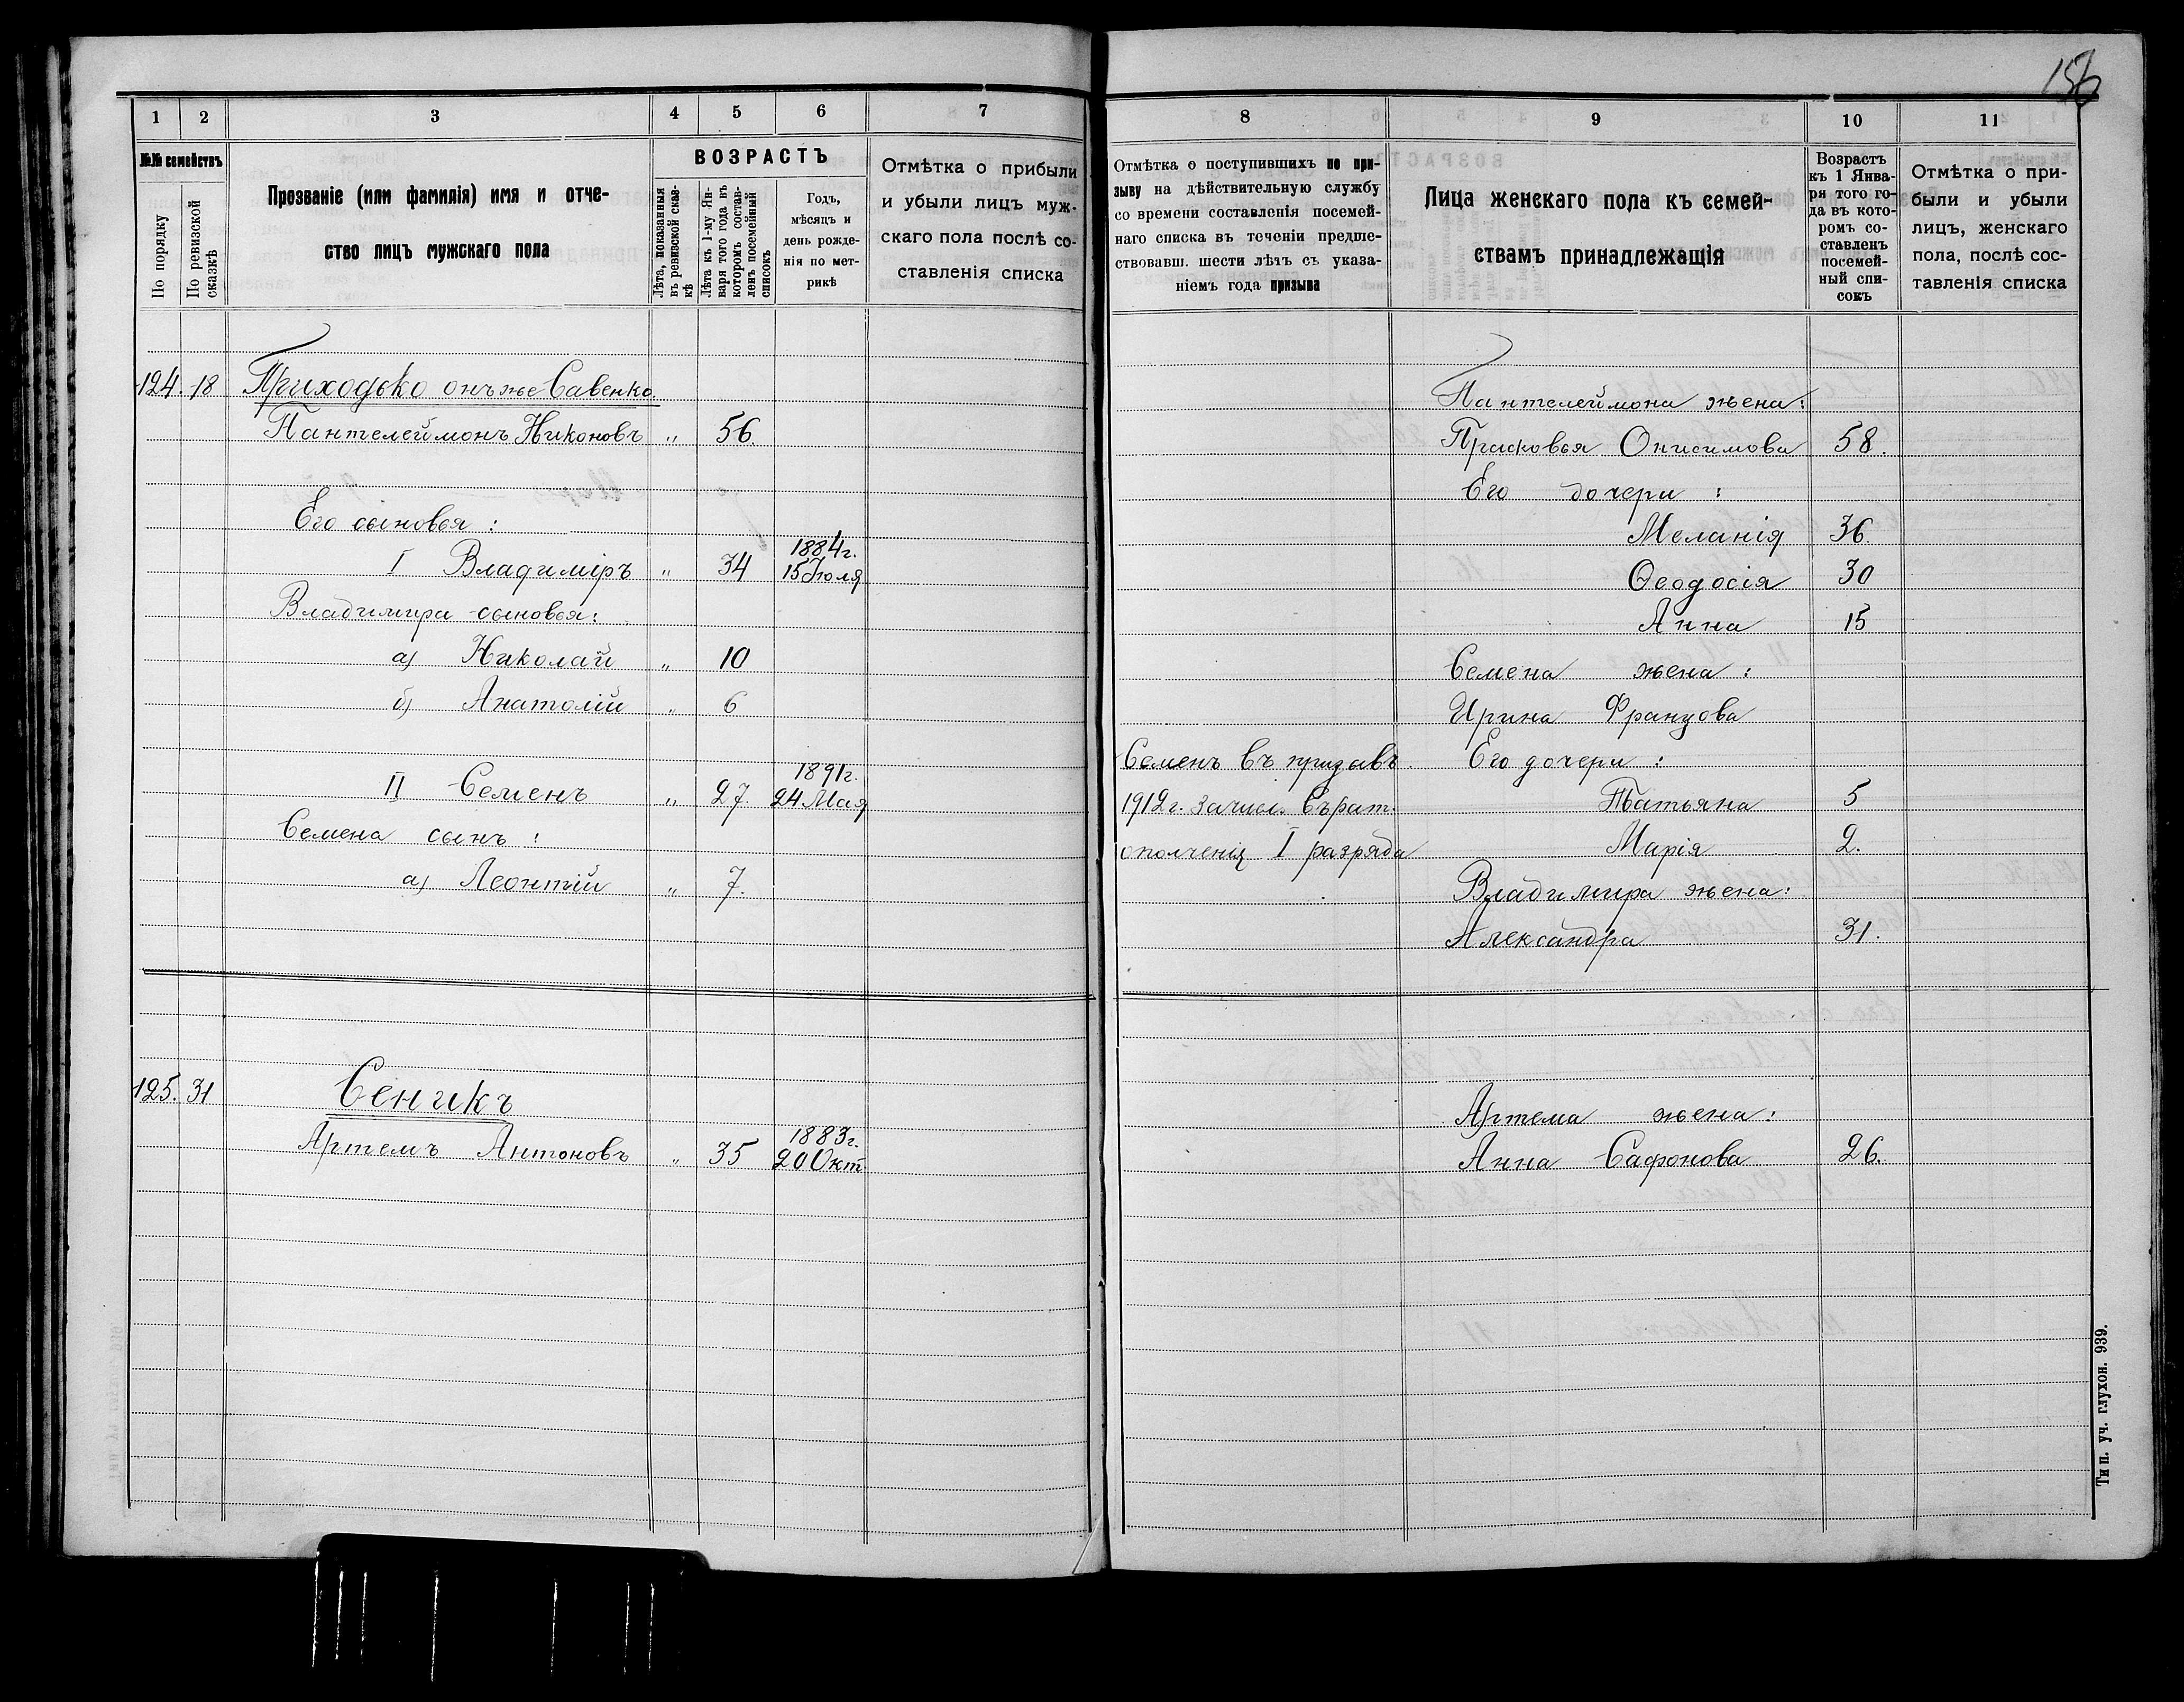 156
1 2 3 4 5 6 7
№№ семействъ
По порядку
По ревизской сказкѣ
Прозваніе (или фамилія) имя и отче-
ство лицъ мужскаго пола
ВОЗРАСТЪ
Лѣта, показанныя въ ревизской сказ-кѣ
Лѣта къ 1-му Ян-варя того года въ которомъ состав-ленъ посемейный списокъ
Годъ,
мѣсяцъ и
день рожде-
нія по мет-
рикѣ
Отмѣтка о прибыли
и убыли лицъ муж-
скаго пола послѣ со-
ставленія списка
124. 18 Приходько онъ же Савенко
Пантелеймонъ Никоновъ „ 56.
Его сыновья:
1884 г.
I Владиміръ „ 34 15 Іюля
Владимира сыновья:
а) Николай „ 10
б) Анатолій „ 6
1891 г.
II Семенъ „ 27. 24 Мая
Семена сынъ:
а) Леонтій „ 7.
125. 31 Сеникъ
1883 г.
Артемъ Антоновъ „ 35 20 Окт
8 9 10 11
Отмѣтка о поступившихъ по при-
зыву на дѣйствительную службу
со времени составленія посемей-
наго списка въ теченіи предше-
ствовавш. шести лѣтъ съ указа-
ніемъ года призыва
Лица женскаго пола къ семей-
ствамъ принадлежащія
Возрастъ
къ 1 Янва-
ря того го-
да въ кото-
ромъ со-
ставленъ
посемей-
ный спи-
сокъ
Отмѣтка о при-
были и убыли
лицъ, женскаго
пола, послѣ сос-
тавленія списка
Пантелеймона жена:
Прасковья Онисимова 58.
Его дочери:
Меланія 36.
Ѳеодосія 30
Анна 15
Семена жена:
Ирина Францова
Семенъ въ призывъ Его дочери:
1912 г. зачисл. въ рат. Татьяна 5
ополченія I разряда Марія 2.
Владимира жена:
Александра 31.
Артема жена:
Анна Сафонова 26.
Тип. уч. глухон. 939.